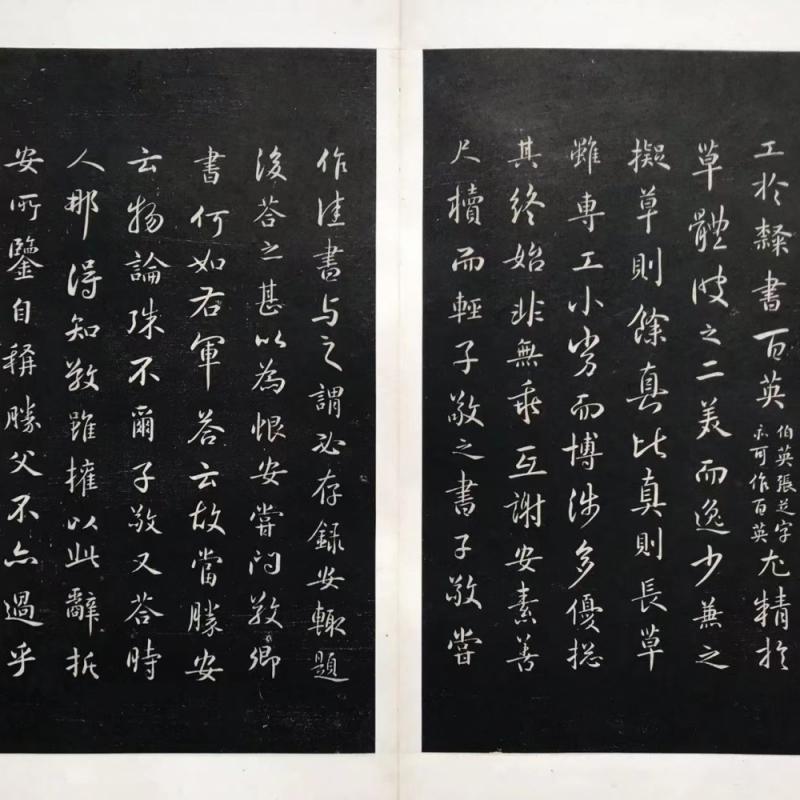 工於隸書百英伯英張芝字亦可作百英尤精於
草體彼之二美而逸少兼之
擬草則餘真比真則長草
雖專工小劣而博涉多優捴
其終始非無乖互謝安素善
尺牘而輕子敬之書子敬嘗
作佳書与之謂必存録安輙題
後荅之甚以為恨安嘗問敬卿
書何如右軍荅云故當勝安
云物論殊不爾子敬又荅時
人那得知敬雖權以此辭折
安所鑒自稱勝父不亦過乎